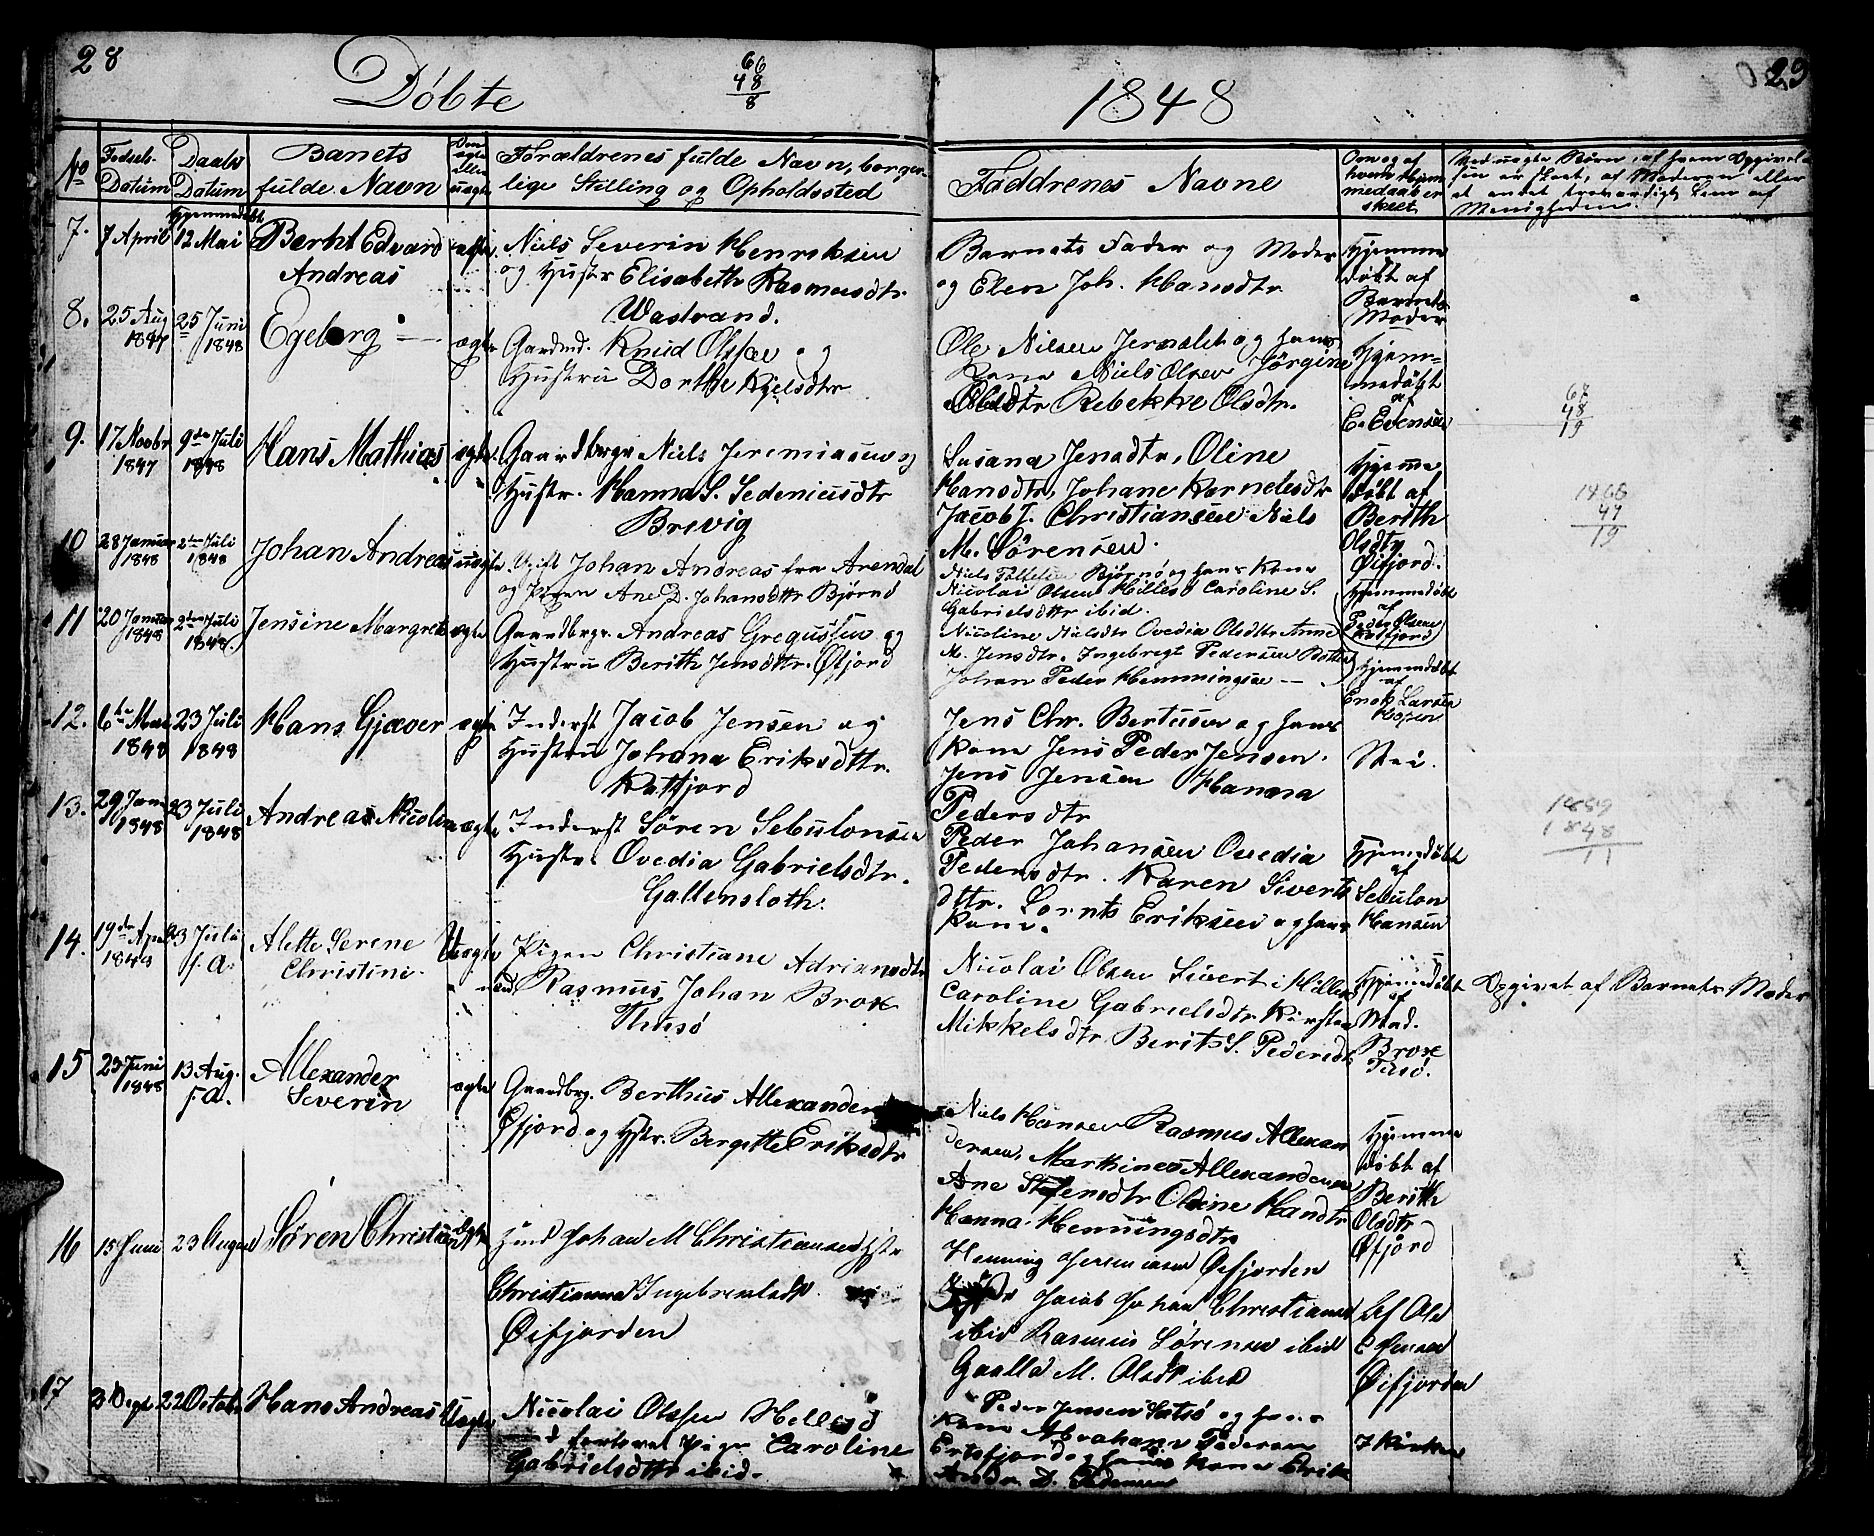 28
Döbte
66
48
8
1848
29
No
Fødsels-
Datum
Daabs
Datum
Banets
fulde Navn
Om
ægte
eller
uægte
Forældrenes fulde Navn, borger-
lige Stilling og Opholdssted
Faddrenes Navne
Om og af
hvem Hjem
medaab er
skeet
Ved uægte Börn, af hvem Opgivel-
sen er skeet, af Moderen eller
et andet troværdigt Lem af
Menigheden.
7.
7 April
Hjemmedøbt
12 Mai
Bernt Edvard
Andreas
ægte
Niels Severin Henriksen
og Hustr Elisabeth Rasmusdtr
Wastrand.
Barnets Fader og Moder
og Elen Joh. Hansdtr
Hjemme
døbt af
Barnets
Moder
8.
25 Aug
1847
25 Juni
1848
Egeborg
ægte
Gaardmd. Knud Olsen og
Hustru Dorthe Kjelsdtr
Ole Nielsen Jernslet og hans
Kone Niels Olsen Jörgine
Olsdtr Rebekke Olsdtr.
Hjem-
medöbt
af
E. Evensen
67
48
19
9.
17 Novbr
1847
9de Juli
1848
Hans Mathias
ægte
Gaardbrgr Niels Jeremiasen og
Hustr. Hanna S. Sedeniusdtr
Brevig
Susana Jensdtr, Oline
Hansdtr, Johane Kornelesdtr
Jacob J. Christiansen Niels
M. Sörensen.
Hjemme
döbt af
Berith
Olsdtr
Öifjord.
1866
47
19
10
28 Januar
1848
Juli
1848
Johan Andreas
uægte
Ugift Johan Andreas fra Arendal
og Pigen Ane D. Johansdttr Bjørnö
Niels Bjørnö og hans Kone
Nicolai Olsen Hillesö Caroline S.
Gabrielsdttr ibid.
Hjemmedöbt
af
Peder Olsen
Katfjord
11
20 Januar
1848
Juli
1848
Jensine Margrete
ægte
Gaardbrgr. Andreas Gregussen og
Hustru Berith Jensdttr. Öfjord
Nicoline Nielsdtr Ovedia Olsdtr Anne
M. Jensdtr. Ingebregt Pedersen
Johan Peder Hemmingsen
Hjemmedöbt
af
Enok Larsen
12.
6te Mai
1848
23 Juli
1848
Hans Gjæver
ægte
Inderst Jacob Jensen og
Hustru Johana Eriksdttr.
Katfjord
Jens Chr. Bertusen og hans
Kone Jens Peder Jensen.
Jens Jensen Hanna
Pedersdtr
Nei.
13.
29 Janr
1848
23 Juli
1848
Andrea Nicoline
ægte
Inderst Sören Sebulonsen
Hustr. Ovedia Gabrielsdtr.
Gallensloth.
Peder Johansen Ovedia
Pedersdtr. Karen Siverts
dttr. Lornts Eriksen og hans
Kone.
Hjemmedöbt
af
Sebulon
Hansen
1889
1848
11
14.
19de April
1848
23 Juli
s. A.
Alette Serene
Christine
Uægte
Pigen Christiane Adriansdtr
Rasmus Johan Brox
Thusö
Nicolai Olsen Sivert i Hilles
Caroline Gabrielsdtr Kirsten
Mikkelsdtr Berit S. Pedersdtr
Hjemmedöbt
af
Mad.
Broxe
Tusö.
Opgivet af Barnets Moder
15
23 Juni
1848
13 Aug.
s. A.
Allexander
Severin
ægte
Gaardbrg. Berthus Allexander
Öfjord og Hstr. Bergitte Eriksdtr
Niels Hansen Rasmus Allexan
dersen, Marthines Allexandersen
Ane Stefensdtr Oline Handtr
Hanna Henningsdtr
Hjemme
döbt af
Berith
Olsdtr
Öfjord
16
15 Juni
23 August
Sören Christian
ægte
Johan M Christiansen Hstr
Christianna Ingebregtsdtr
Öifjorden
Henning Jeremiasen Öifjorden
Jacob Johan Christiansen
ibid Rasmus Sörensen ibid
M. Olsdtr ibid
Lef Ole
Evensen
Öifjorden
17
3 Sept
22 Octob
Hans Andreas
Uægte
Nicolai Olssen Hellesö
forlovet Pige Caroline
Gabrielsdttr ibid.
Peder Jensen og hans
Kone Abrahan Pedersen
Ersfjord og hans Kone Erik
Andr. D. Pedersen
I Kirken